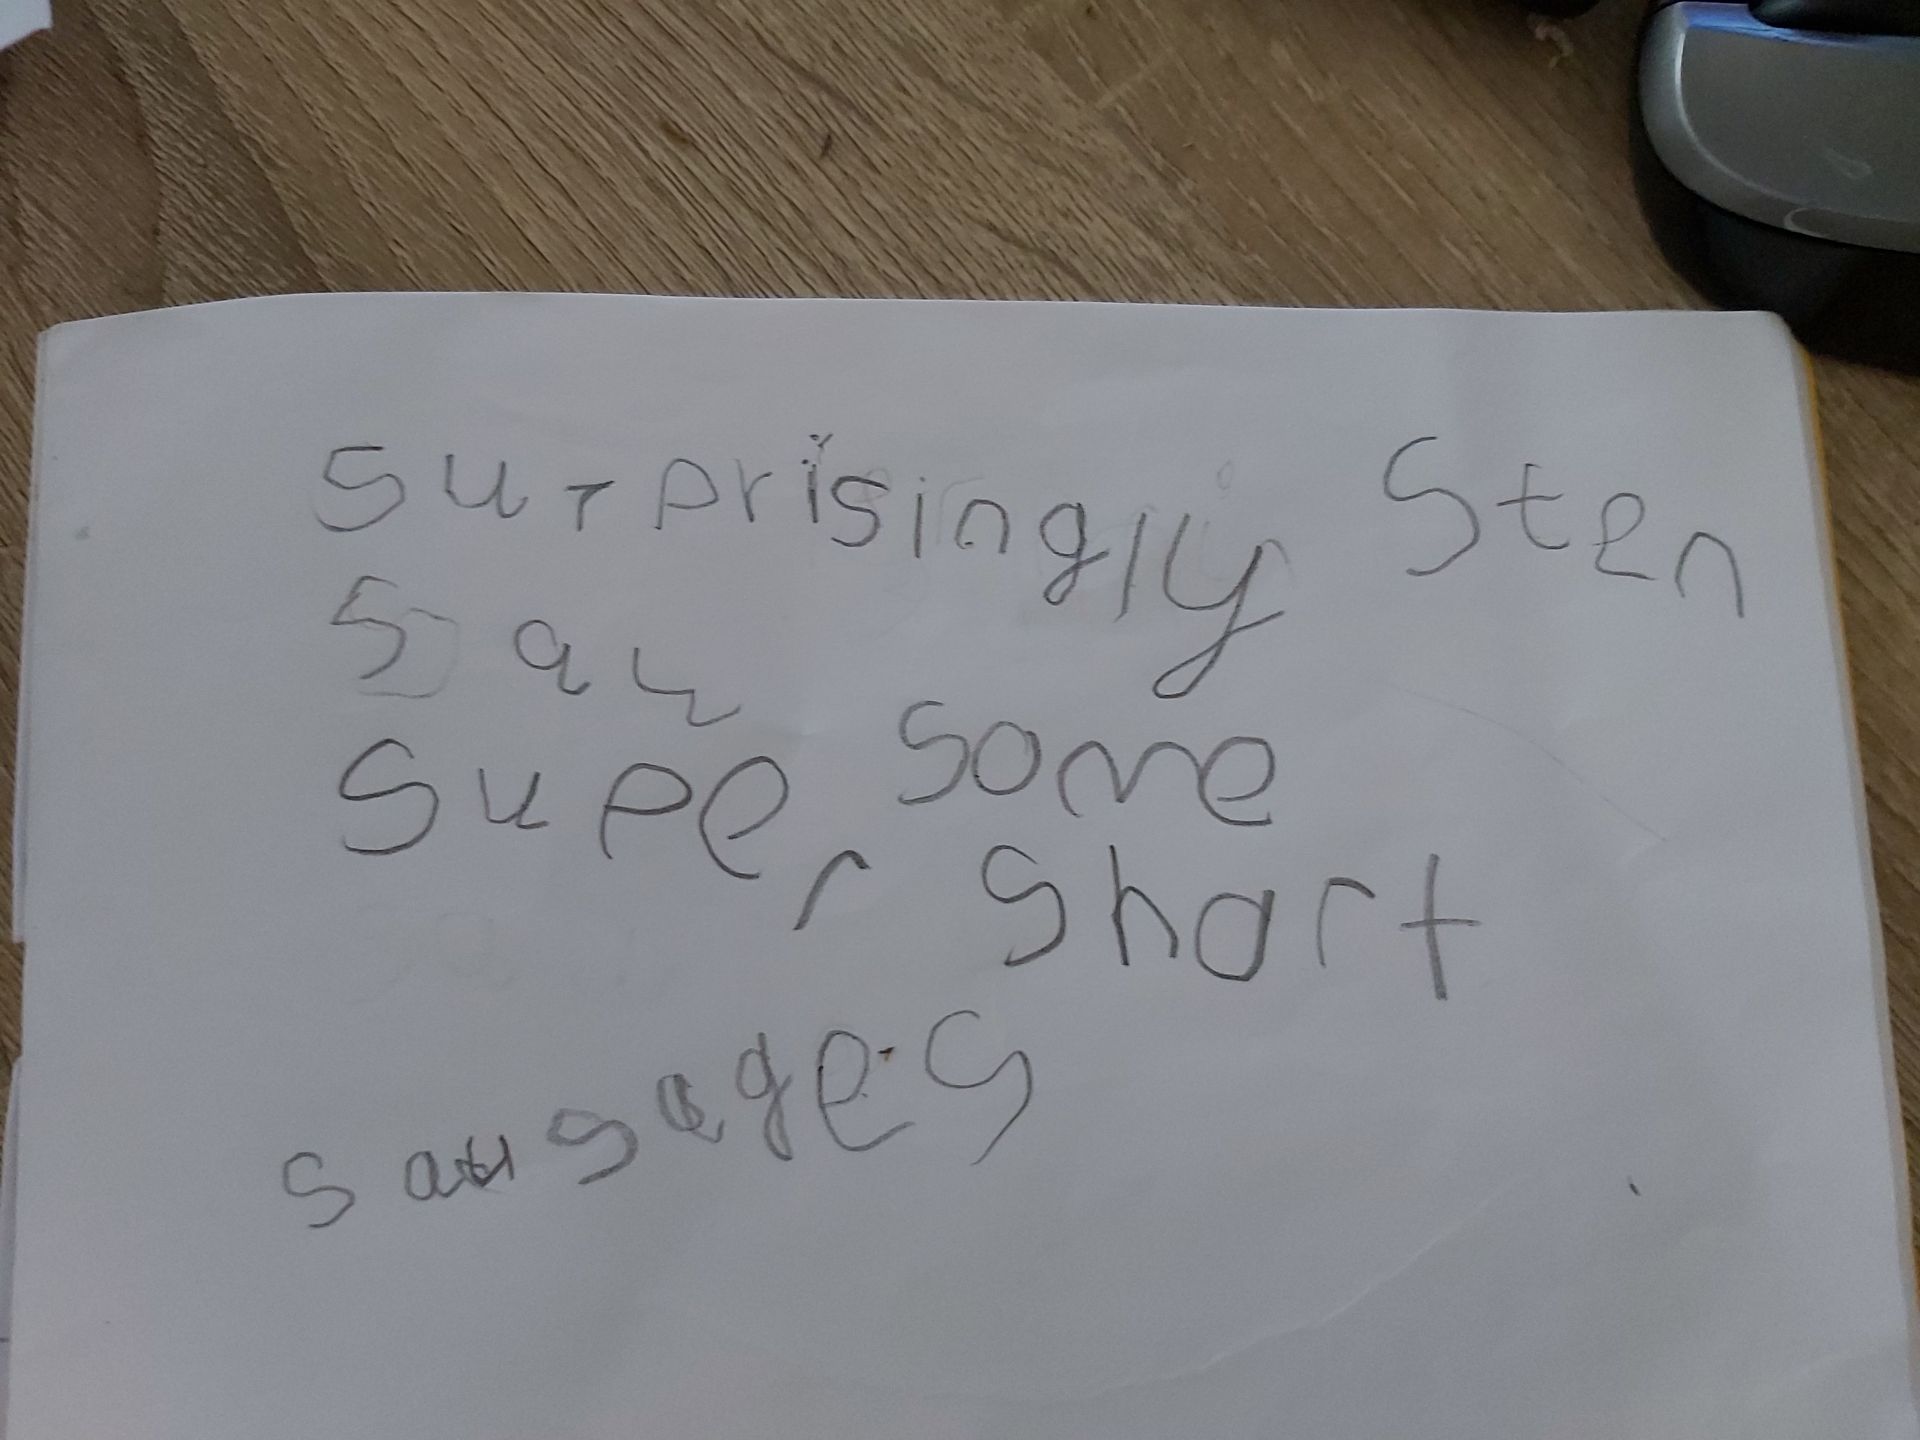 Surprisingly Sten
Saw some
Super Short
sausages